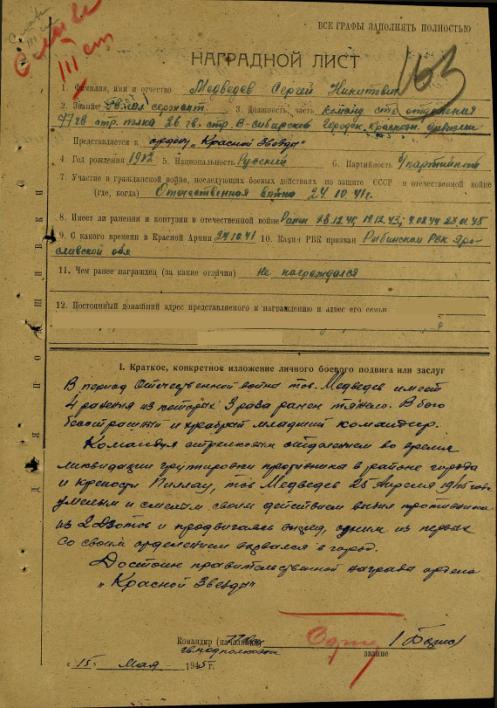 Славы
III ст
ВСЕ ГРАФЫ ЗАПОЛНЯТЬ ПОЛНОСТЬЮ
НАГРАДНОЙ ЛИСТ
163
1. Фамилия, имя и отчество Медведев Сергей Никитович
2. Звание сержант 3. Должность, часть команд. стр. отделения
77 гв. стр. полка 26 гв. стр. В-Сибирской Городок. Краснозн. дивизии
Представляется к ордену "Красной Звезды"
4. Год рождения 1902 5. Национальность Русский 6. Партийность б/партийный
7. Участие в гражданской войне, последующих боевых действиях по защите СССР и отечественной войне
(где, когда) Отечественная война 24.10.41г.
8. Имеет ли ранения и контузии в отечественной войне Ранен
9. С какого времени в Красной Армии 24.10.41 10. Каким РВК призван Рыбинским РВК Яро-
славской обл
11. Чем ранее награжден (за какие отличия) Не награждался
12. Постоянный домашний адрес представляемого к награждению и адрес его семьи
I. Краткое, конкретное изложение личного боевого подвига или заслуг
В период Отечественной войны тов. Медведев имеет
4 ранения из которых 3 раза ранен тяжело. В бою
бесстрашный и храбрый младший командир.
Командуя стрелковым отделением во время
ликвидации группировки противника в районе города
и крепости Пиллау, тов Медведев 25 апреля 1945 года
умелым и смелым своим действием выбил противника
из 2 дзотов и продвигаясь вперед, одним из первых
со своим отделением ворвался в город.
Достоин правительственной награды ордена
"Красной Звезды"
Командир 77
гв. подполковник
звание
"15" мая 1945г